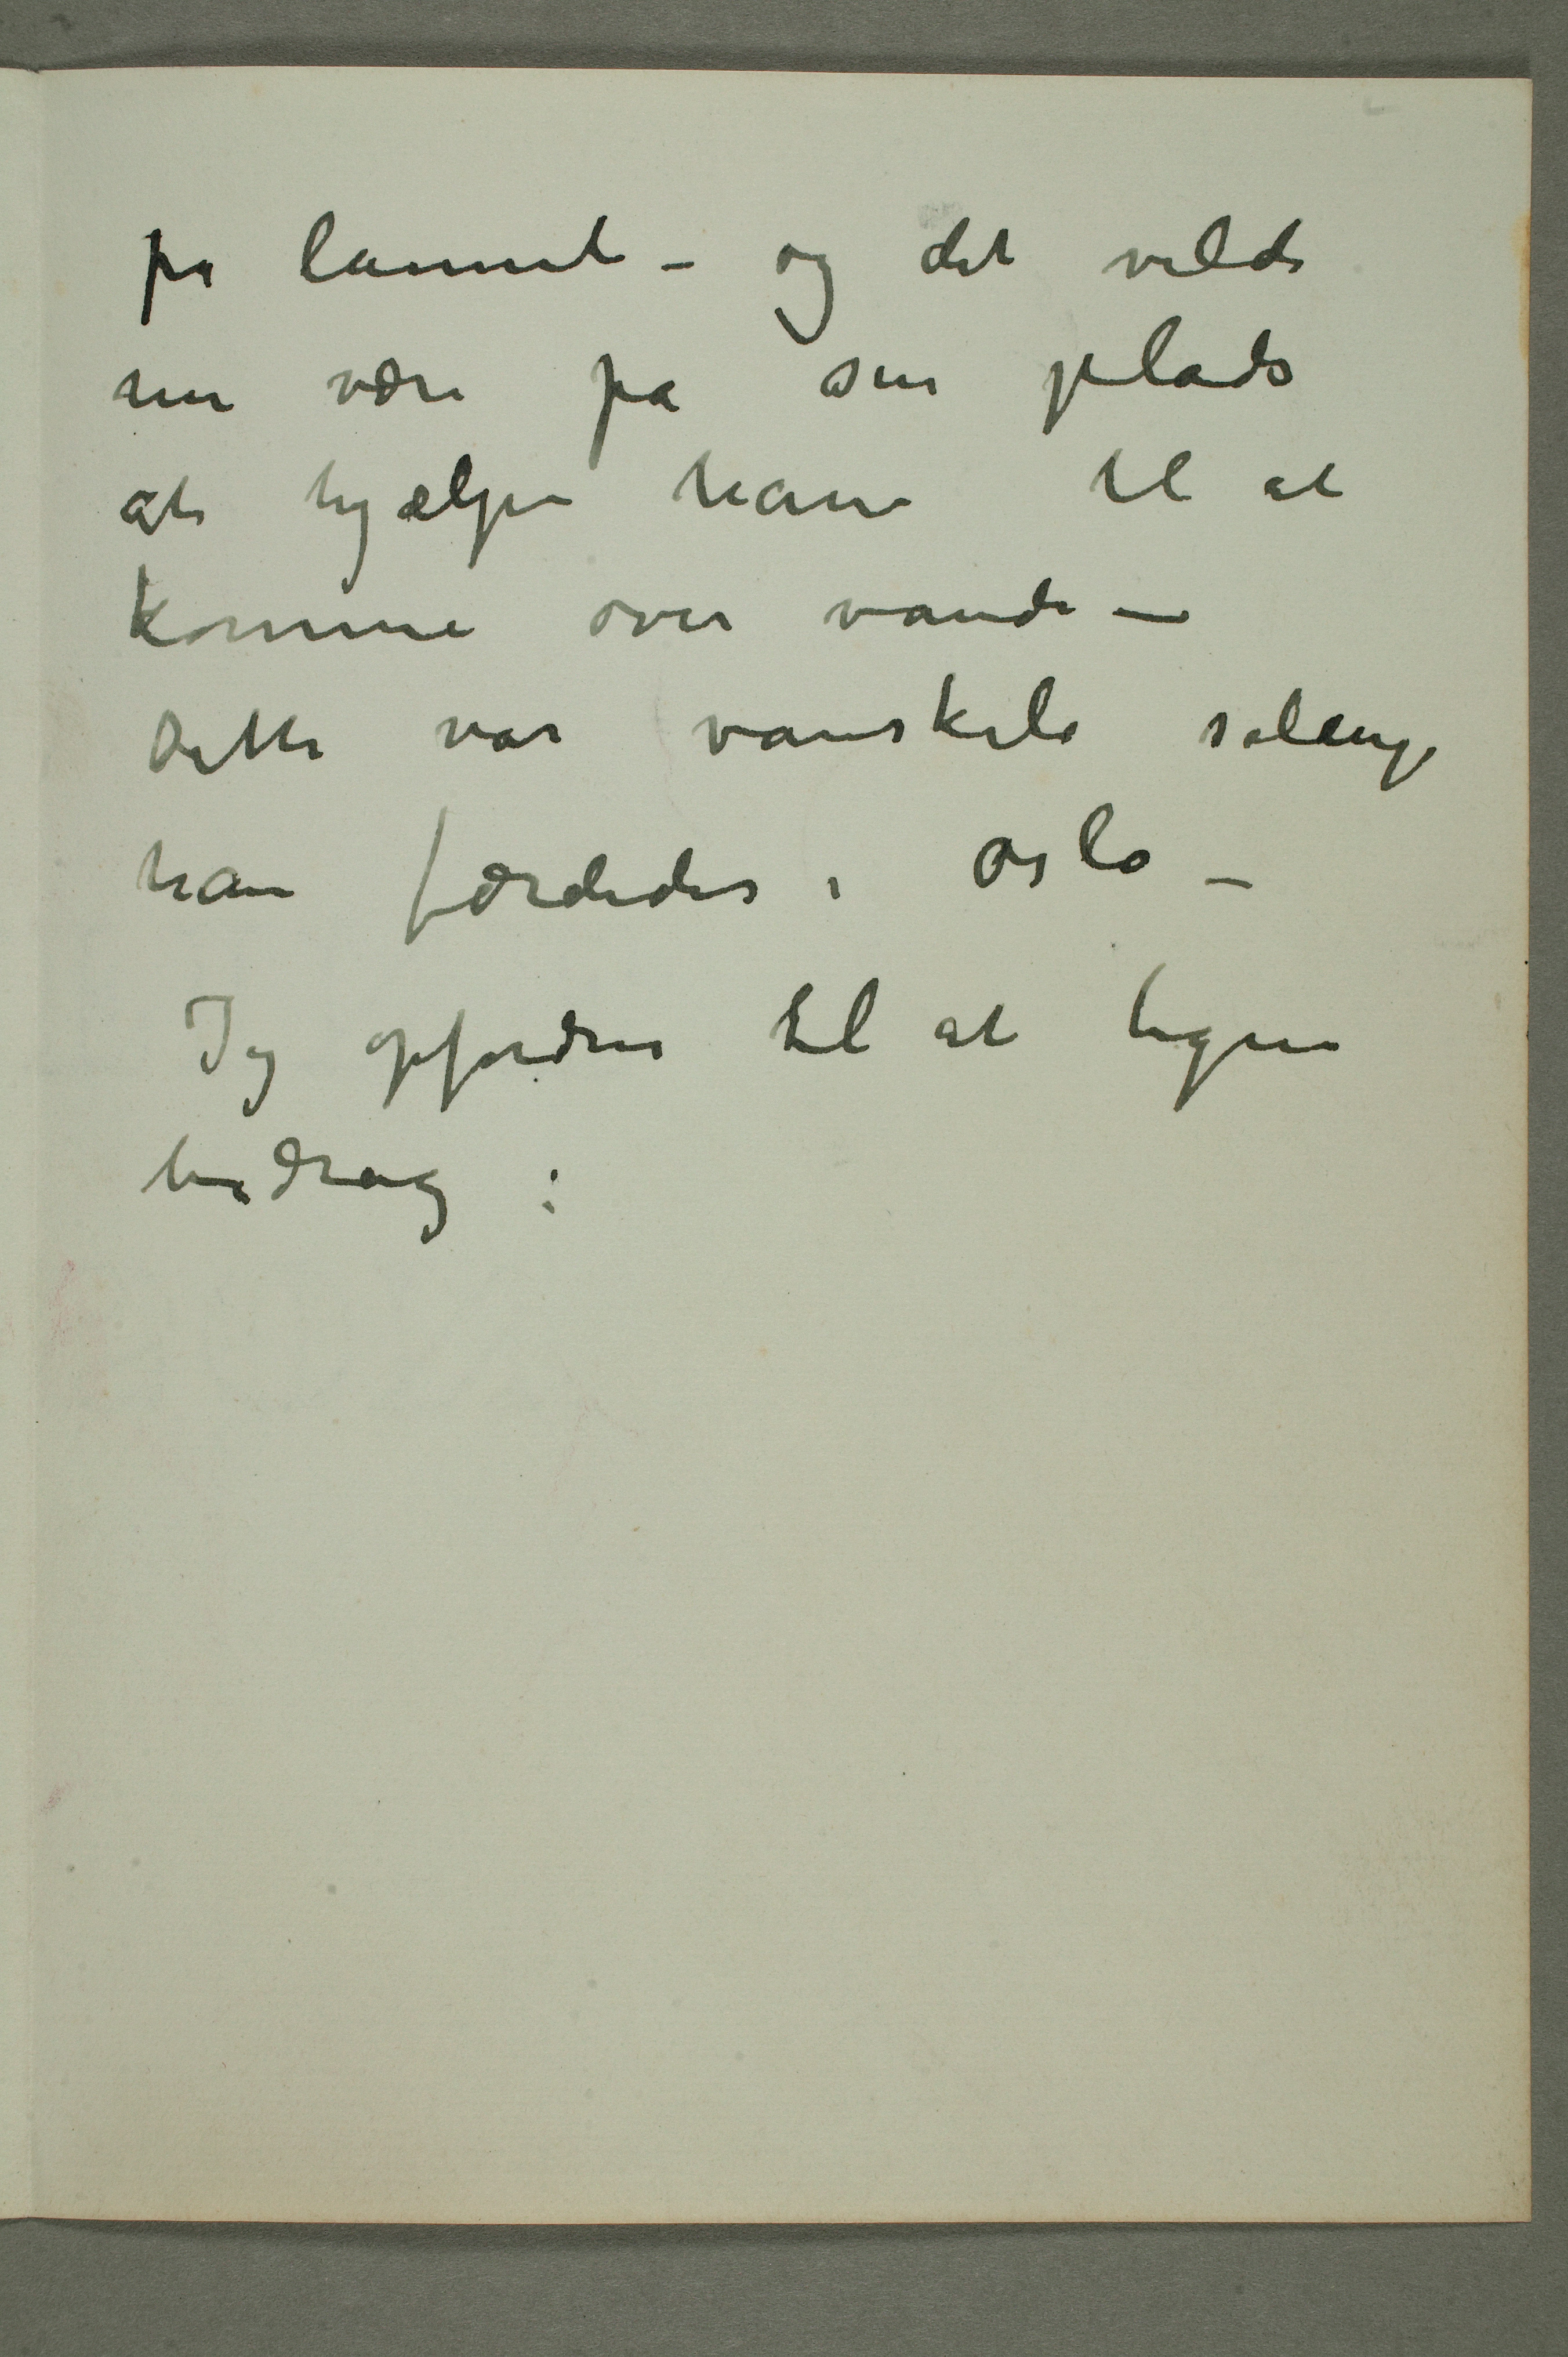 på lannet – og det vilde
nu være på sin plads
at hjælpe ham til at
komme over vande —
Dette var vanskeli sålenge
han færdedes i Oslo –
Jeg opfordrer til at tegne
bidrag :